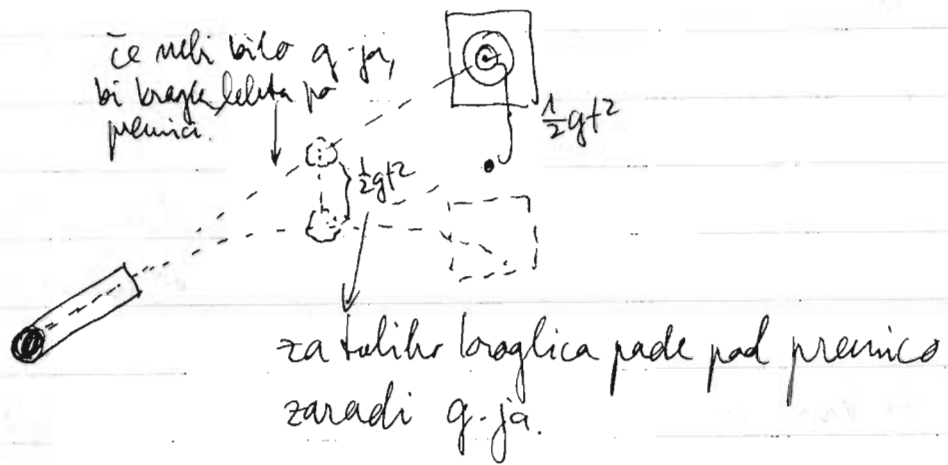 če nebi bilo g-ja,
bi krogla letela po
premici.
½gt²
½gt²
za toliko kroglica pade pod premico
zaradi g-ja.